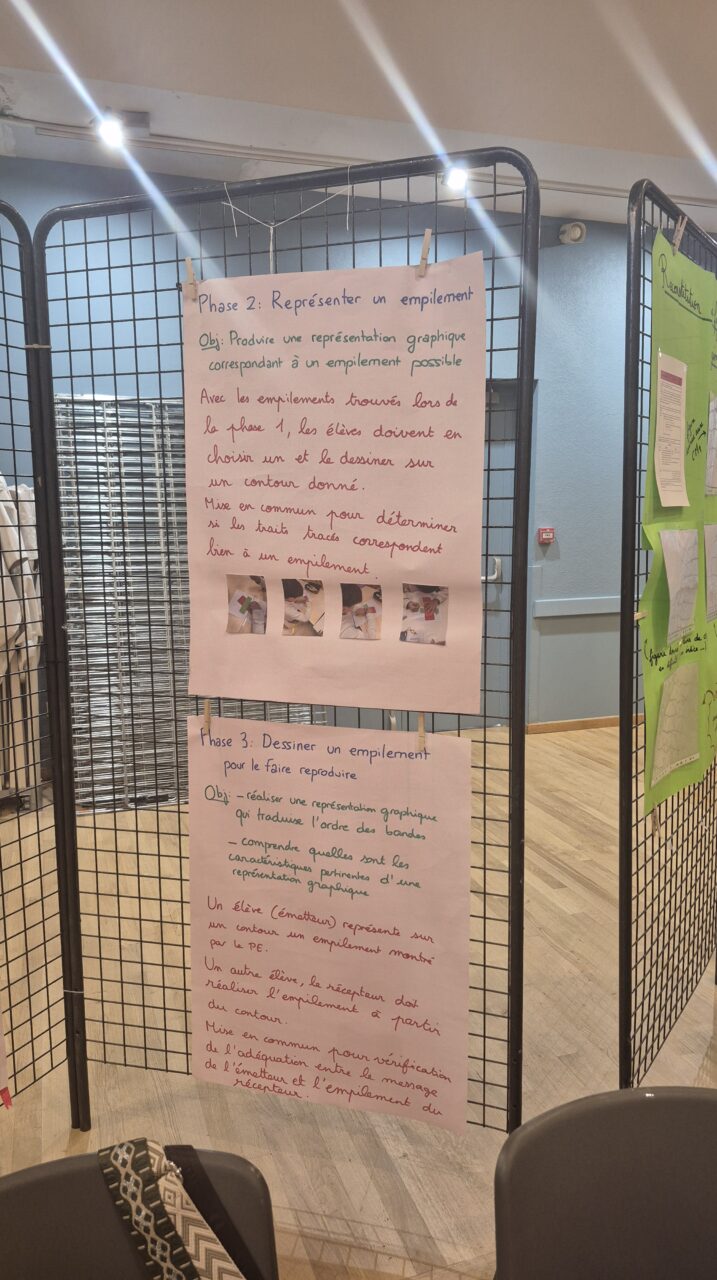 Phase 2: Représenter un empilement
Obj: Produire une représentation graphique
correspondant à un empilement possible
Avec les empilements trouvés lors de
la phase 1, les élèves doivent en
choisir un et le dessiner sur
un contour donné.
Mise en commun pour déterminer
si les traits tracés correspondent
bien à un empilement.
Phase 3: Dessiner un empilement
pour le faire reproduire
Obj: - réaliser une représentation graphique
qui traduise l'ordre des bandes
- comprendre quelles sont les
caractéristiques pertinentes d'une
représentation graphique
Un élève (émetteur) représente sur
un contour un empilement montré
par le PE.
Un autre élève, le récepteur doit
réaliser l'empilement à partir
du contour.
Mise en commun pour vérification
de l'adéquation entre le message
de l'émetteur et l'empilement du
récepteur.